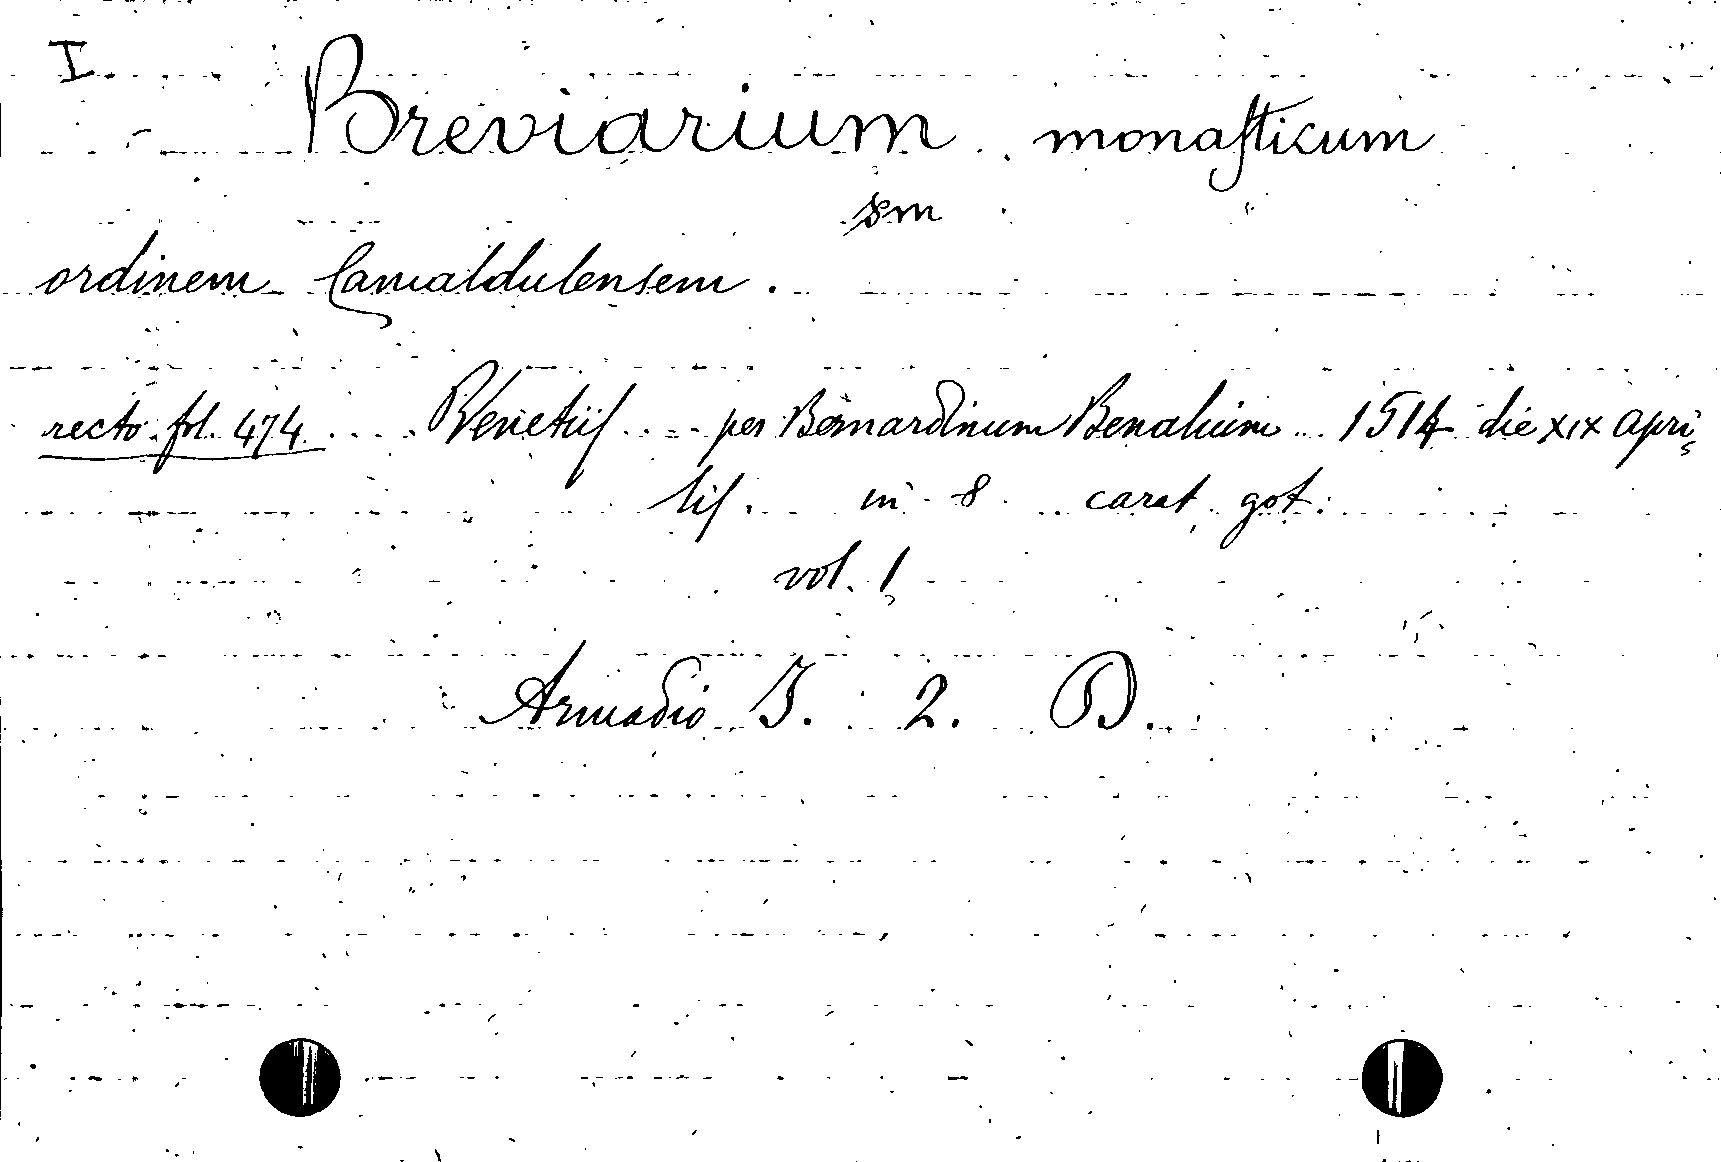 I
Breviarium monaſticum
sm
ordinem Camaldulensem.
recto fol. 474 Venetiiſ per Bernardinum Benalium 1514 die XIX apri
liſ. in 8 carat. got:
vol. 1
Armadio I. 2. B.